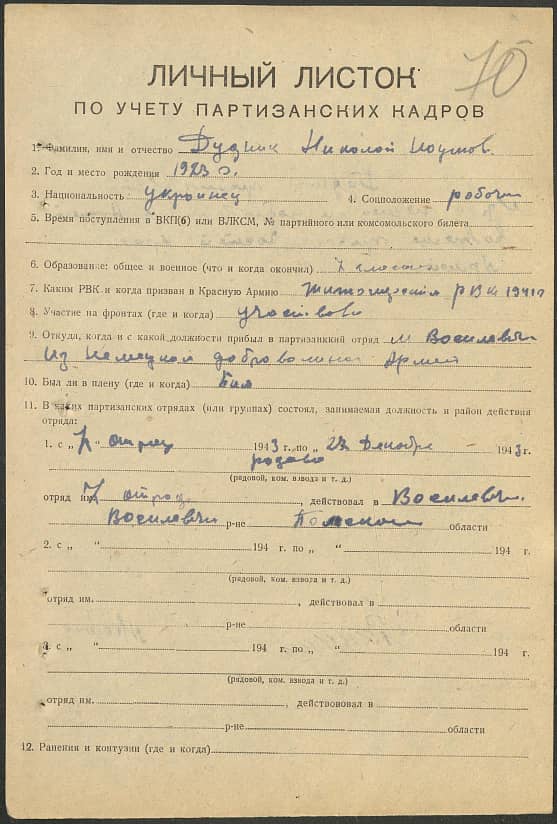 70
ЛИЧНЫЙ ЛИСТОК
ПО УЧЕТУ ПАРТИЗАНСКИХ КАДРОВ
1. Фамилия, имя и отчество Дудник Николой Наумов.
2. Год и место рождения 1923 г.
3. Национальность украинец 4. Соцположение рабочи
5. Время поступления в ВКП(б) или ВЛКСМ, № партийного или комсомольского билета
6. Образование: общее и военное (что и когда окончил) 7 классов
7. Каким РВК и когда призван в Красную Армию РВК 1941 г
8. Участие на фронтах (где и когда) участвовал
9. Откуда, когда и с какой должности прибыл в партизанский отряд м Василевичи
из Немецкой добровольной Армей
10. Был ли в плену (где и когда) Был
11. В каких партизанских отрядах (или группах) состоял, занимаемая должность и район действия
отряда:
1. с „ " отряд 1943 г. по „ 27 Декобря 1943 г.
родовой
(рядовой, ком. взвода и т. д.)
отряд им. 7 отряд, действовал в Василевичи.
Василевичи р-не Полеской области
2. с „ " 194 г. по „ " 194 г.
(рядовой, ком. взвода и т. д.)
отряд им. , действовал в
р-не области
3. с „ " 194 г. по „ " 194 г.
(рядовой, ком. взвода и т. д.)
отряд им. , действововал в
р-не области
12. Ранения и контузии (где и когда)